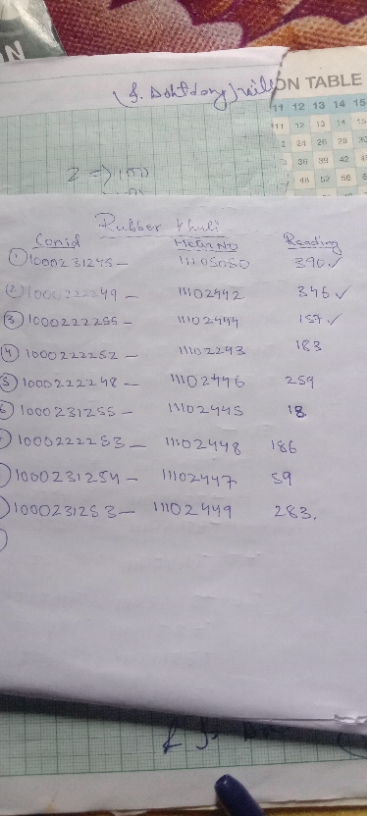 ON TABLE
11 12 13 14 15
11 12 13 14 15
2 24 26
36 39 42
48 52 56
Rubber thuli
Conid Meter NO Reading
① 1000231245 - 11105050 390 ✓
② 1000222249 - 11102442 346 ✓
③ 1000222255 - 11102444 157 ✓
④ 1000222252 - 11102293 183
⑤ 1000222248 - 11102446 259
1000231255 - 11102445 18
1000222253 - 11102448 186
1000231254 - 11102447 59
1000231253 - 11102449 283.